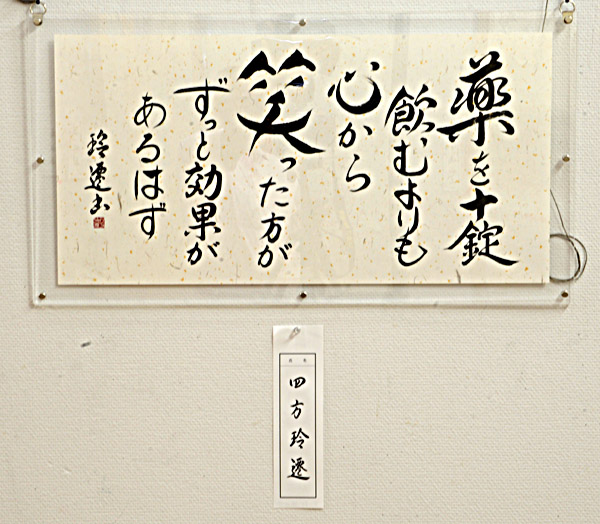 薬を十錠
飲むよりも
心から
笑った方が
ずっと効果が
あるはず
玲遷書
四方玲遷